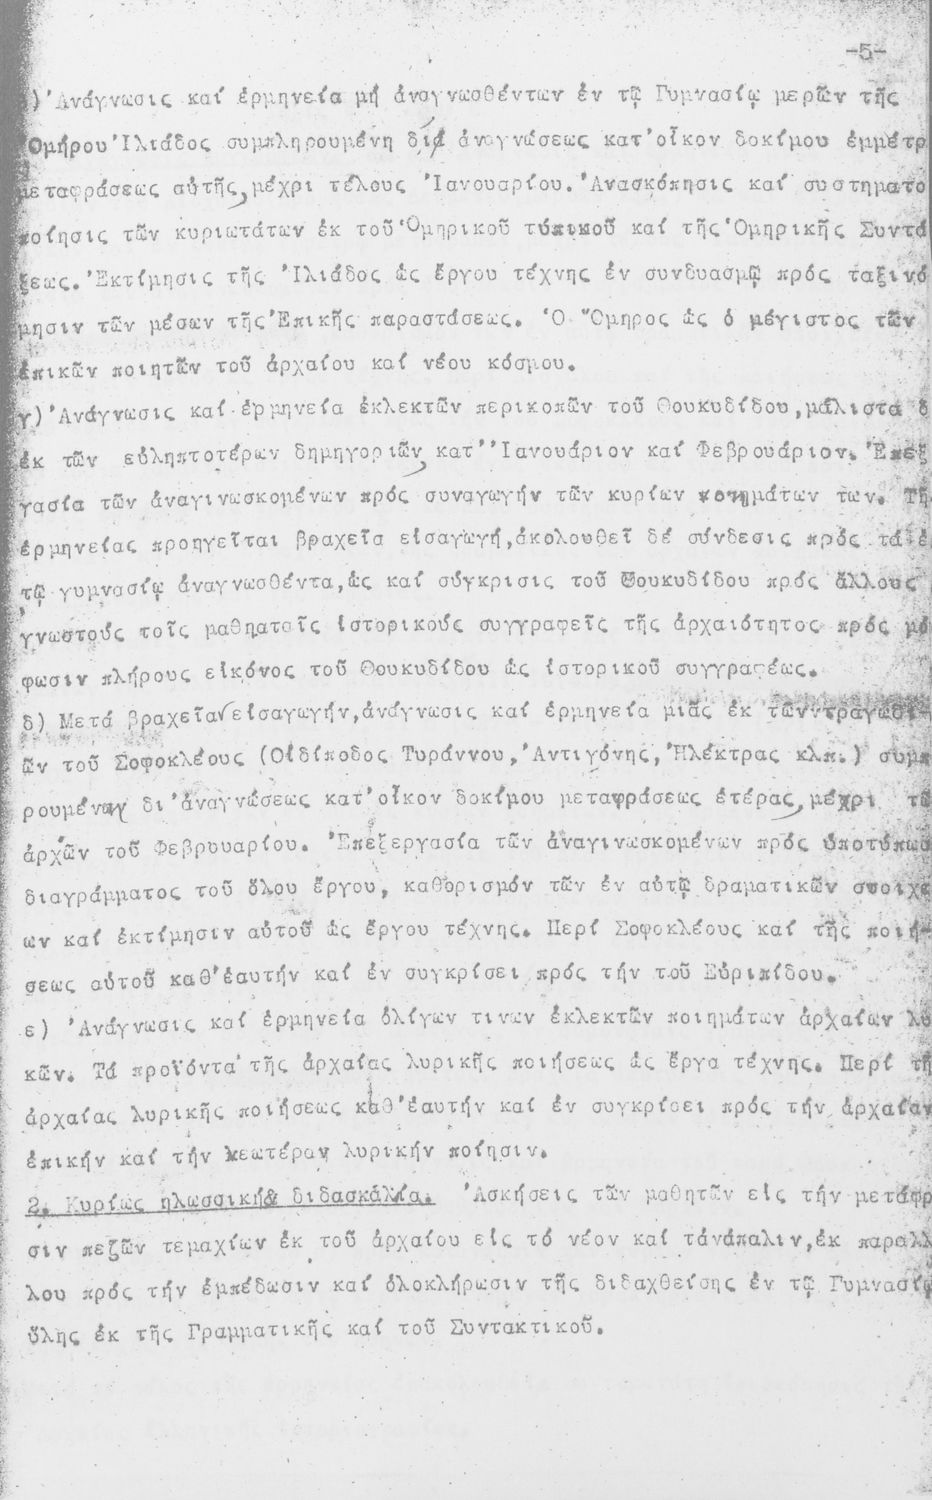 -5-
)'Ανάγνωσις καί ἑρμηνεία μή ἀναγνωσθέντων ἐν τῷ Γυμνασίῳ μερῶν τῆς
Ὁμήρου Ἰλιάδος συμπληρουμένη διά ἀναγνώσεως κατ'οἶκον δοκίμου ἐμμέτρ
μεταφράσεως αὐτῆς,μέχρι τέλους Ἰανουαρίου.Ἀνασκόπησις καί συστηματο
ποίησις τῶν κυριωτάτων ἐκ τοῦ Ὁμηρικοῦ τυπικοῦ καί τῆς Ὁμηρικῆς Συντά
ξεως.Ἐκτίμησις τῆς Ἰλιάδος ὡς ἔργου τέχνης ἐν συνδυασμῷ πρός ταξινό
μησιν τῶν μέσων τῆς Ἐπικῆς παραστάσεως. Ὁ Ὅμηρος ὡς ὁ μέγιστος τῶν
ἐπικῶν ποιητῶν τοῦ ἀρχαίου καί νέου κόσμου.
γ)Ἀνάγνωσις καί ἑρμηνεία ἐκλεκτῶν περικοπῶν τοῦ Θουκυδίδου,μάλιστα δ
ἐκ τῶν εὐληπτοτέρων δημηγοριῶν, κατ''Ιανουάριον καί Φεβρουάριον. Ἐπεξ
γασία τῶν ἀναγινωσκομένων πρός συναγωγήν τῶν κυρίων νοημάτων των. Τῆ
ἑρμηνείας προηγεῖται βραχεῖα εἰσαγωγή,ἀκολουθεῖ δέ σύνδεσις πρός τά ἐ
τῷ γυμνασίῳ ἀναγνωσθέντα,ὡς καί σύγκρισις τοῦ Θουκυδίδου πρός ἄλλους
γνωστούς τοῖς μαθηταῖς ἱστορικούς συγγραφεῖς τῆς ἀρχαιότητος πρός μό
φωσιν πλήρους εἰκόνος τοῦ Θουκυδίδου ὡς ἱστορικοῦ συγγραφέως.
δ) Μετά βραχεῖαν εἰσαγωγήν,ἀνάγνωσις καί ἑρμηνεία μιᾶς ἐκ τῶνντραγωδι-
ῶν τοῦ Σοφοκλέους (Οἰδίποδος Τυράννου,Ἀντιγόνης,Ἠλέκτρας κλπ.) συμπ
ρουμένην δι'ἀναγνώσεως κατ'οἶκον δοκίμου μεταφράσεως ἑτέρας,μέχρι τῶ
ἀρχῶν τοῦ Φεβρουαρίου. Ἐπεξεργασία τῶν ἀναγινωσκομένων πρός ὑποτύπωσ
διαγράμματος τοῦ ὅλου ἔργου, καθορισμόν τῶν ἐν αὐτῷ δραματικῶν στοιχε
ων καί ἐκτίμησιν αὐτοῦ ὡς ἔργου τέχνης. Περί Σοφοκλέους καί τῆς ποιή-
σεως αὐτοῦ καθ'ἑαυτήν καί ἐν συγκρίσει πρός τήν τοῦ Εὐριπίδου.
ε) Ἀνάγνωσις καί ἑρμηνεία ὀλίγων τινων ἐκλεκτῶν ποιημάτων ἀρχαίων λυ
κῶν. Τά προϊόντα τῆς ἀρχαίας λυρικῆς ποιήσεως ὡς ἔργα τέχνης. Περί τῆ
ἀρχαίας λυρικῆς ποιήσεως καθ'ἑαυτήν καί ἐν συγκρίσει πρός τήν ἀρχαίαν
ἐπικήν καί τήν νεωτέραν λυρικήν ποίησιν.
2. Κυρίως γλωσσική διδασκαλία. Ἀσκήσεις τῶν μαθητῶν εἰς τήν μετάφρ
σιν πεζῶν τεμαχίων ἐκ τοῦ ἀρχαίου εἰς τό νέον καί τἀνάπαλιν,ἐκ παραλλ
λου πρός τήν ἐμπέδωσιν καί ὁλοκλήρωσιν τῆς διδαχθείσης ἐν τῷ Γυμνασίῳ
ὕλης ἐκ τῆς Γραμματικῆς καί τοῦ Συντακτικοῦ.